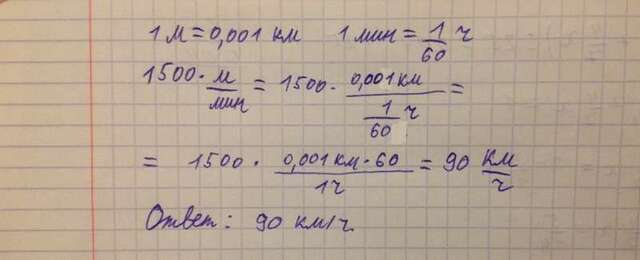 1 м = 0,001 км 1 мин = 1/60 ч
1500 · м/мин = 1500 · 0,001 км / 1/60 ч =
= 1500 · 0,001 км · 60 / 1 ч = 90 км/ч
Ответ: 90 км/ч